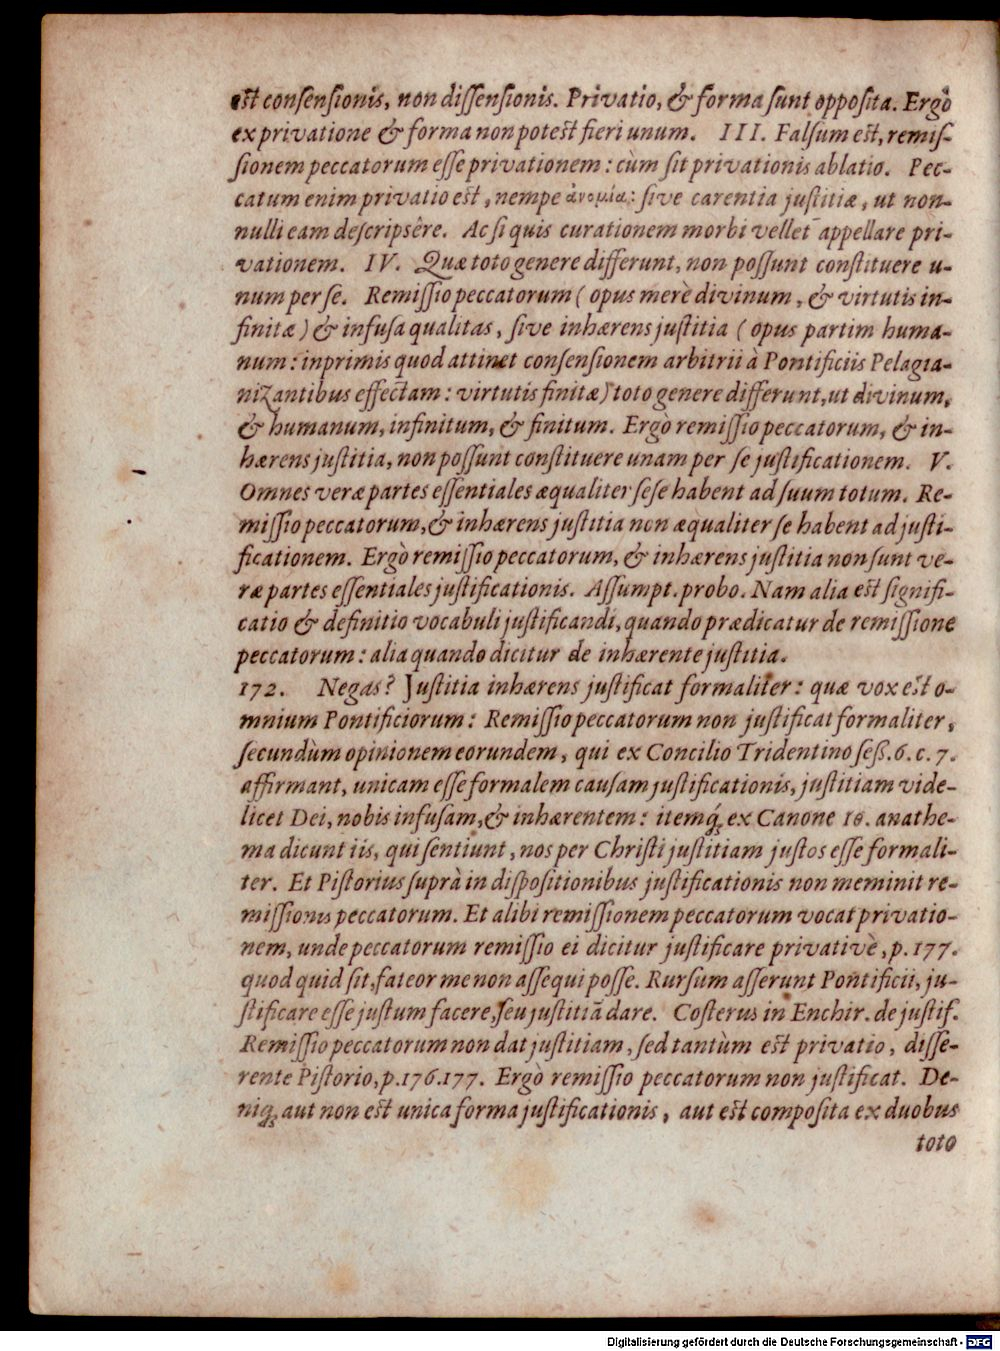 est consensionis, non dissensionis. Privatio, & forma sunt opposita. Ergò
ex privatione & forma non potest fieri unum. III. Falsum est, remis-
sionem peccatorum esse privationem: cùm sit privationis ablatio. Pec-
catum enim privatio est, nempe ἀνομία: sive carentia justitiæ, ut non-
nulli eam descripsêre. Ac si quis curationem morbi vellet appellare pri-
vationem. IV. Quæ toto genere differunt, non possunt constituere u-
num per se. Remissio peccatorum (opus merè divinum, & virtutis in-
finitæ) & infusa qualitas, sive inhærens justitia (opus partim huma-
num: inprimis quod attinet consensionem arbitrii à Pontificiis Pelagia-
nizantibus effectam: virtutis finitæ) toto genere differunt, ut divinum,
& humanum, infinitum, & finitum. Ergò remissio peccatorum, & in-
hærens justitia, non possunt constituere unam per se justificationem. V.
Omnes veræ partes essentiales æqualiter sese habent ad suum totum. Re-
missio peccatorum, & inhærens justitia non æqualiter se habent ad justi-
ficationem. Ergò remissio peccatorum, & inhærens justitia non sunt ve-
ræ partes essentiales justificationis. Assumpt. probo. Nam alia est signifi-
catio & definitio vocabuli justificandi, quando prædicatur de remissione
peccatorum: alia quando dicitur de inhærente justitia.
172. Negas? Justitia inhærens justificat formaliter: quæ vox est o-
mnium Pontificiorum: Remissio peccatorum non justificat formaliter,
secundùm opinionem eorundem, qui ex Concilio Tridentino seß. 6. c. 7.
affirmant, unicam esse formalem causam justificationis, justitiam vide-
licet Dei, nobis infusam, & inhærentem: itemq́; ex Canone 10. anathe-
ma dicunt iis, qui sentiunt, nos per Christi justitiam justos esse formali-
ter. Et Pistorius suprà in dispositionibus justificationis non meminit re-
missionis peccatorum. Et alibi remissionem peccatorum vocat privatio-
nem, unde peccatorum remissio ei dicitur justificare privativè, p. 177.
quod quid sit, fateor me non assequi posse. Rursum asserunt Pontificii, ju-
stificare esse justum facere, seu justitiā dare. Costerus in Enchir. de justif.
Remissio peccatorum non dat justitiam, sed tantùm est privatio, disse-
rente Pistorio, p. 176. 177. Ergò remissio peccatorum non justificat. De-
niq́; aut non est unica forma justificationis, aut est composita ex duobus
toto
Digitalisierung gefördert durch die Deutsche Forschungsgemeinschaft - DFG